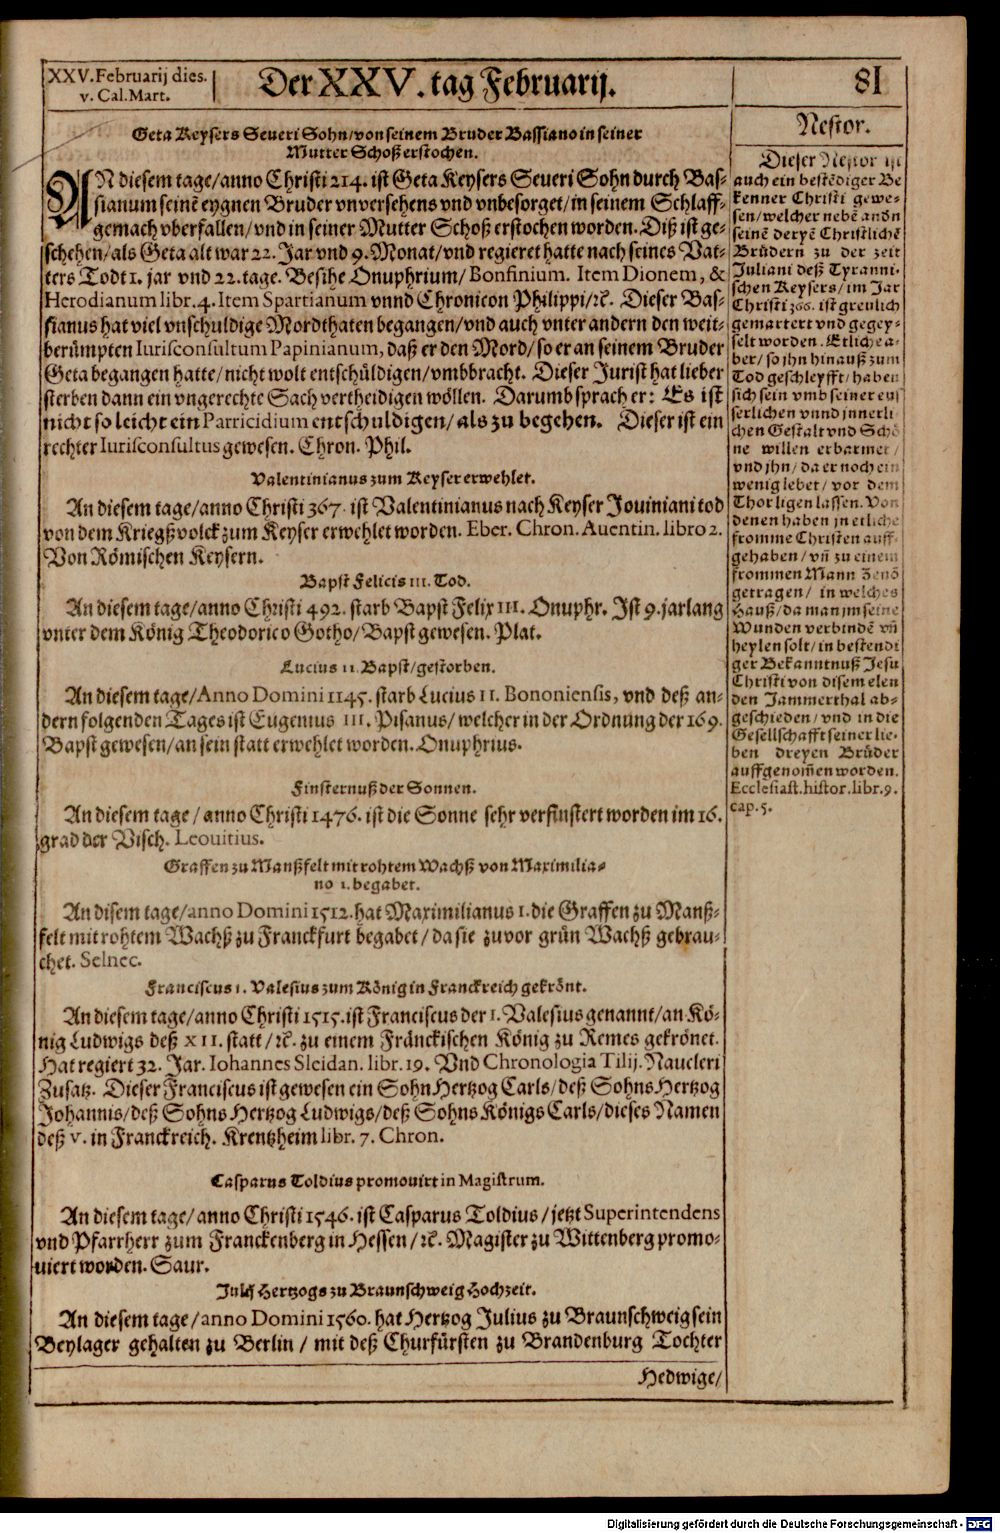 XXV. Februarij dies.
v. Cal. Mart.
Der XXV. tag Februarij.
81
Geta Keysers Seueri Sohn/von seinem Bruder Bassiano in seiner
Mutter Schoß erstochen.
AN diesem tage/anno Christi 214. ist Geta Keysers Seueri Sohn durch Bas-
sianum seinē eygnen Bruder vnversehens vnd vnbesorget/in seinem Schlaff-
gemach vberfallen/vnd in seiner Mutter Schoß erstochen worden. Diß ist ge-
schehen/als Geta alt war 22. Jar vnd 9. Monat/vnd regieret hatte nach seines Vat-
ters Todt 1. jar vnd 22. tage. Besihe Onuphrium/Bonfinium. Item Dionem, &
Herodianum libr. 4. Item Spartianum vnnd Chronicon Philippi/ꝛc. Dieser Bas-
sianus hat viel vnschuldige Mordthaten begangen/vnd auch vnter andern den weit-
berümpten Iurisconsultum Papinianum, daß er den Mord/so er an seinem Bruder
Geta begangen hatte/nicht wolt entschüldigen/vmbbracht. Dieser Jurist hat lieber
sterben dann ein vngerechte Sach vertheidigen wöllen. Darumb sprach er: Es ist
nicht so leicht ein Parricidium entschuldigen/als zu begehen. Dieser ist ein
rechter Iurisconsultus gewesen. Chron. Phil.
Valentinianus zum Keyser erwehlet.
An diesem tage/anno Christi 367. ist Valentinianus nach Keyser Jouiniani tod
von dem Kriegßvolck zum Keyser erwehlet worden. Eber. Chron. Auentin. libro 2.
Von Römischen Keysern.
Bapst Felicis III. Tod.
An diesem tage/anno Christi 492. starb Bapst Felix III. Onuphr. Ist 9. jar lang
vnter dem König Theodorico Gotho/Bapst gewesen. Plat.
Lucius II. Bapst/gestorben.
An diesem tage/Anno Domini 1145. starb Lucius II. Bononiensis, vnd deß an-
dern folgenden Tages ist Eugenius III. Pisanus/welcher in der Ordnung der 169.
Bapst gewesen/an sein statt erwehlet worden. Onuphrius.
Finsternuß der Sonnen.
An diesem tage/anno Christi 1476. ist die Sonne sehr verfinstert worden im 16.
grad der Visch. Leouitius.
Graffen zu Manßfelt mit rohtem Wachß von Maximilia-
no I. begabet.
An disem tage/anno Domini 1512. hat Maximilianus I. die Graffen zu Manß-
felt mit rohtem Wachß zu Franckfurt begabet/da sie zuvor grün Wachß gebrau-
chet. Selnec.
Franciscus I. Valesius zum König in Franckreich gekrönt.
An diesem tage/anno Christi 1515. ist Franciscus der I. Valesius genannt/an Kö-
nig Ludwigs deß XII. statt/ꝛc. zu einem Fränckischen König zu Remes gekrönet.
Hat regiert 32. Jar. Iohannes Sleidan. libr. 19. Vnd Chronologia Tilij. Naucleri
Zusatz. Dieser Franciscus ist gewesen ein Sohn Hertzog Carls/deß Sohns Hertzog
Johannis/deß Sohns Hertzog Ludwigs/deß Sohns Königs Carls/dieses Namen
deß V. in Franckreich. Krentzheim libr. 7. Chron.
Casparus Toldius promouirt in Magistrum.
An diesem tage/anno Christi 1546. ist Casparus Toldius/jetzt Superintendens
vnd Pfarrherr zum Franckenberg in Hessen/ꝛc. Magister zu Wittenberg promo-
uiert worden. Saur.
Julij Hertzogs zu Braunschweig Hochzeit.
An diesem tage/anno Domini 1560. hat Hertzog Julius zu Braunschweig sein
Beylager gehalten zu Berlin/mit deß Churfürsten zu Brandenburg Tochter
Hedwige/
Nestor.
Dieser Nestor ist
auch ein bestēdiger Be
kenner Christi gewe-
sen/welcher nebē andn
seinē dreyē Christlichē
Brüdern zu der zeit
Juliani deß Tyranni-
schen Keysers/im Jar
Christi 366. ist greulich
gemartert vnd gegey-
selt worden. Etliche a-
ber/so jhn hinauß zum
Tod geschleyfft/haben
sich sein vmb seiner eus
serlichen vnnd jnnerli
chen Gestalt vnd Schö
ne willen erbarmet/
vnd jhn/da er noch ein
wenig lebet/vor dem
Thor ligen lassen. Von
denen haben jn etliche
fromme Christen auff-
gehaben/vn̄ zu einem
frommen Mann Zenō
getragen/in welches
Hauß/da man jm seine
Wunden verbindē vn̄
heylen solt/in bestendi
ger Bekanntnuß Jesu
Christi von disem elen
den Jammerthal ab-
geschieden/vnd in die
Gesellschafft seiner lie-
ben dreyen Brüder
auffgenom̄en worden.
Ecclesiast. histor. libr. 9.
cap. 5.
Digitalisierung gefördert durch die Deutsche Forschungsgemeinschaft - DFG